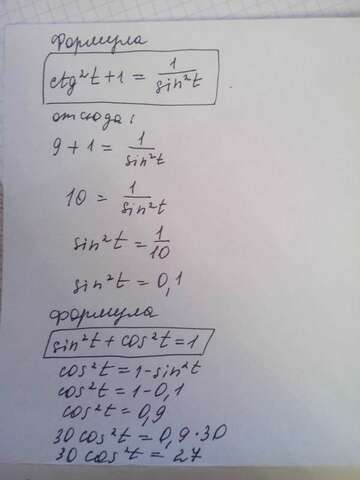 Формула
ctg²t + 1 = 1/sin²t
отсюда:
9 + 1 = 1/sin²t
10 = 1/sin²t
sin²t = 1/10
sin²t = 0,1
формула
sin²t + cos²t = 1
cos²t = 1 - sin²t
cos²t = 1 - 0,1
cos²t = 0,9
30 cos²t = 0,9 · 30
30 cos²t = 27